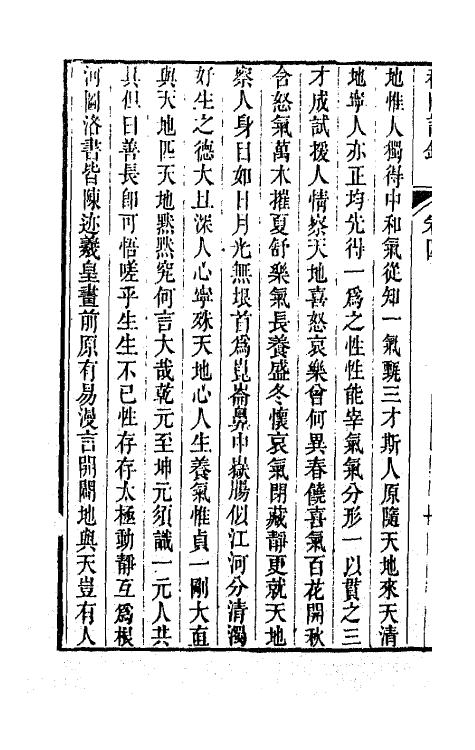 卷四
地惟人獨得中和氣從知一氣甄三才斯人原隨天地來天清
地寧人亦正均先得一爲之性性能宰氣氣分形一以貫之三
才成試援人情察天地喜怒哀樂曾何異春饒喜氣百花開秋
含怒氣萬木摧夏舒樂氣長養盛冬懷哀氣閉藏靜更就天地
察人身目如日月光無垠首爲崑崙鼻中嶽腸似江河分清濁
好生之德大且深人心寧殊天地心人生養氣惟貞一剛大直
與天地匹天地默默究何言大哉乾元至坤元須識一元人共
具但曰善長即可悟嗟乎生生不已性存存太極動靜互爲根
河圖洛書皆陳迹羲皇畫前原有易漫言開闢地與天豈有人